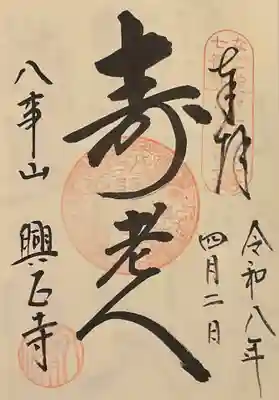 奉拝
令和八年
四月二日
寿老人
八事山
興正寺